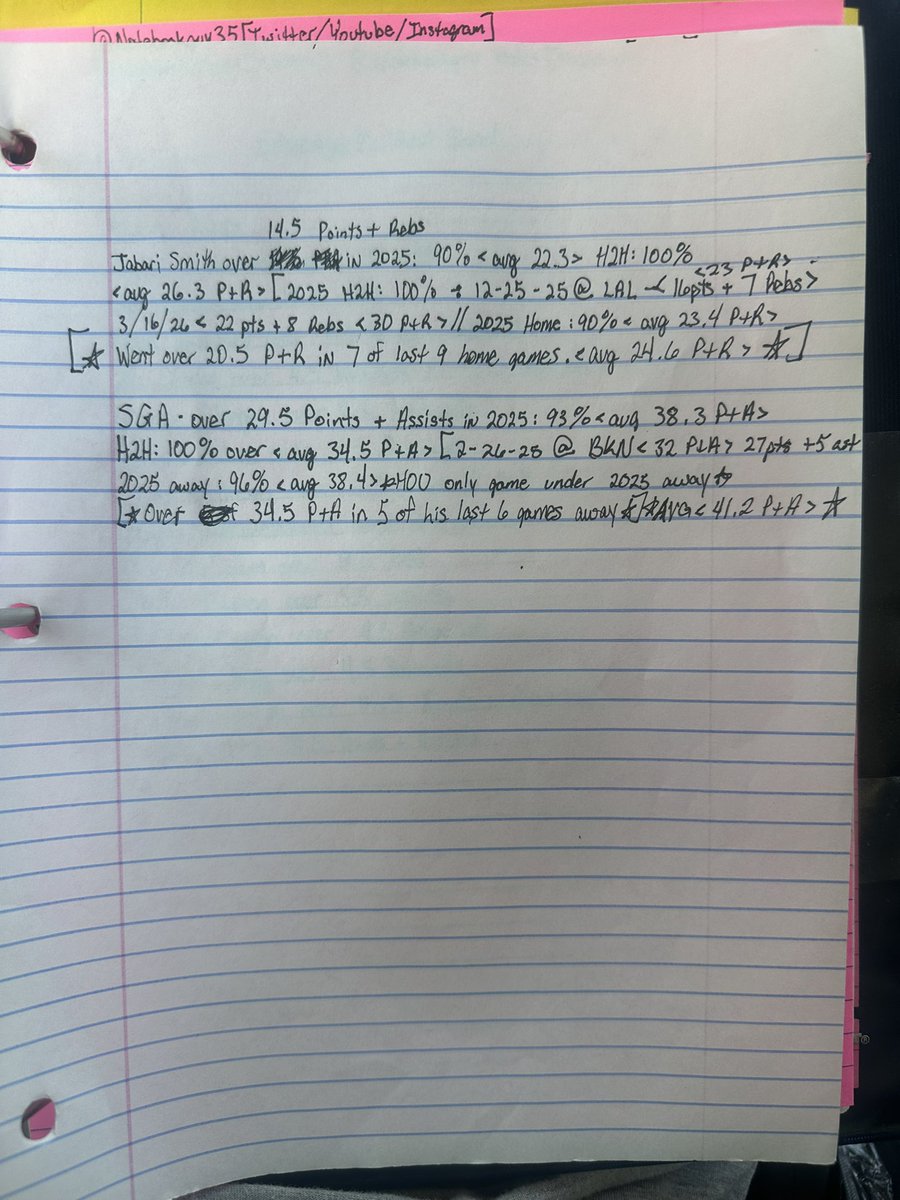 [Twitter/Youtube/Instagram]
14.5 Points + Rebs
Jabari Smith over in 2025: 90% < avg 22.3> H2H: 100%
<23 P+R>
<avg 26.3 P+R> [2025 H2H: 100% → 12-25-25 @ LAL < 16pts + 7 Rebs>
3/16/26 < 22 pts + 8 Rebs <30 P+R> // 2025 Home: 90% < avg 23.4 P+R>
[☆ Went over 20.5 P+R in 7 of last 9 home games. <avg 24.6 P+R> ☆]
SGA - over 29.5 Points + Assists in 2025: 93% <avg 38.3 P+A>
H2H: 100% over < avg 34.5 P+A> [2-26-25 @ BKN < 32 P+A> 27pts +5 ast
2025 away: 96% <avg 38.4> HOU only game under 2025 away ☆
[☆ Over 34.5 P+A in 5 of his last 6 games away ☆] ☆AVG < 41.2 P+A> ☆